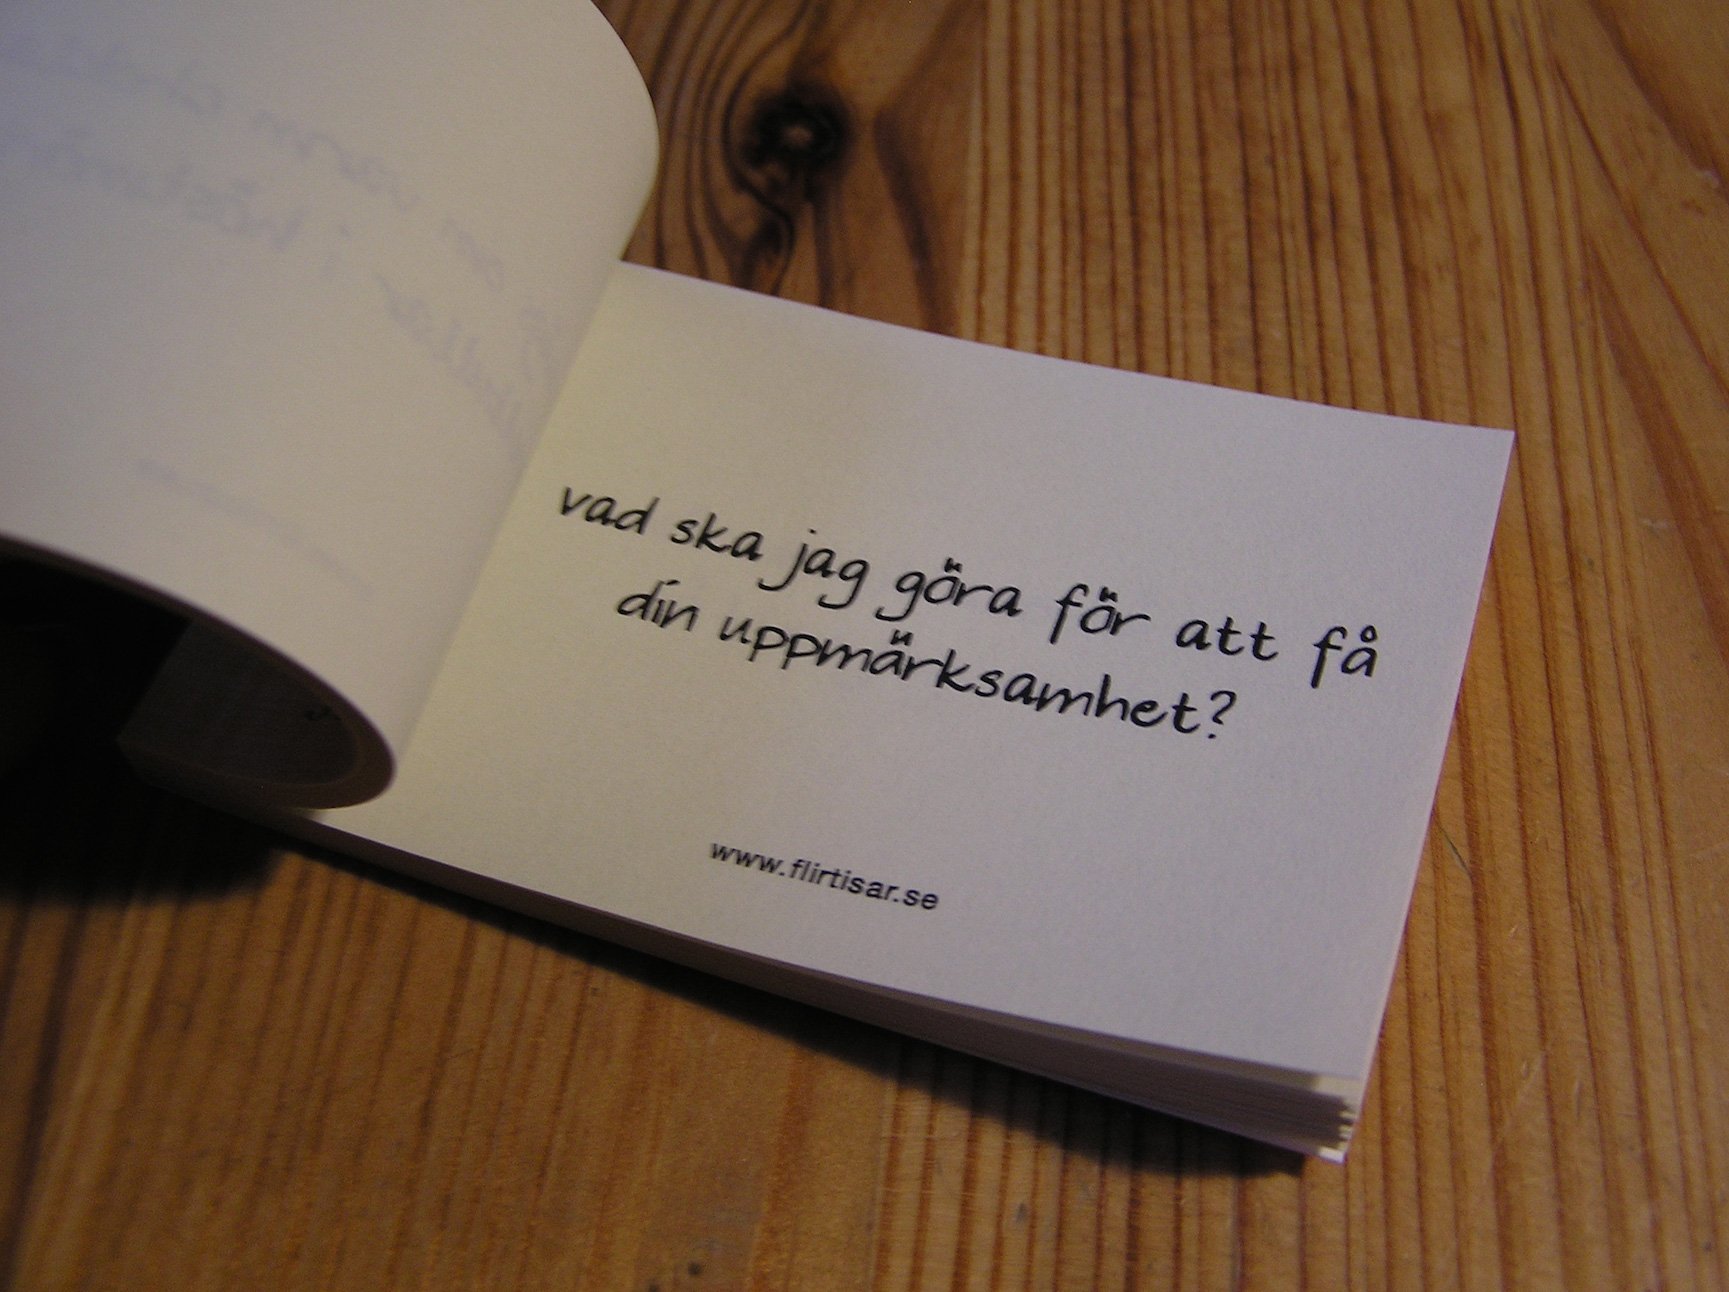 vad ska jag göra för att få
din uppmärksamhet?
www.flirtisar.se